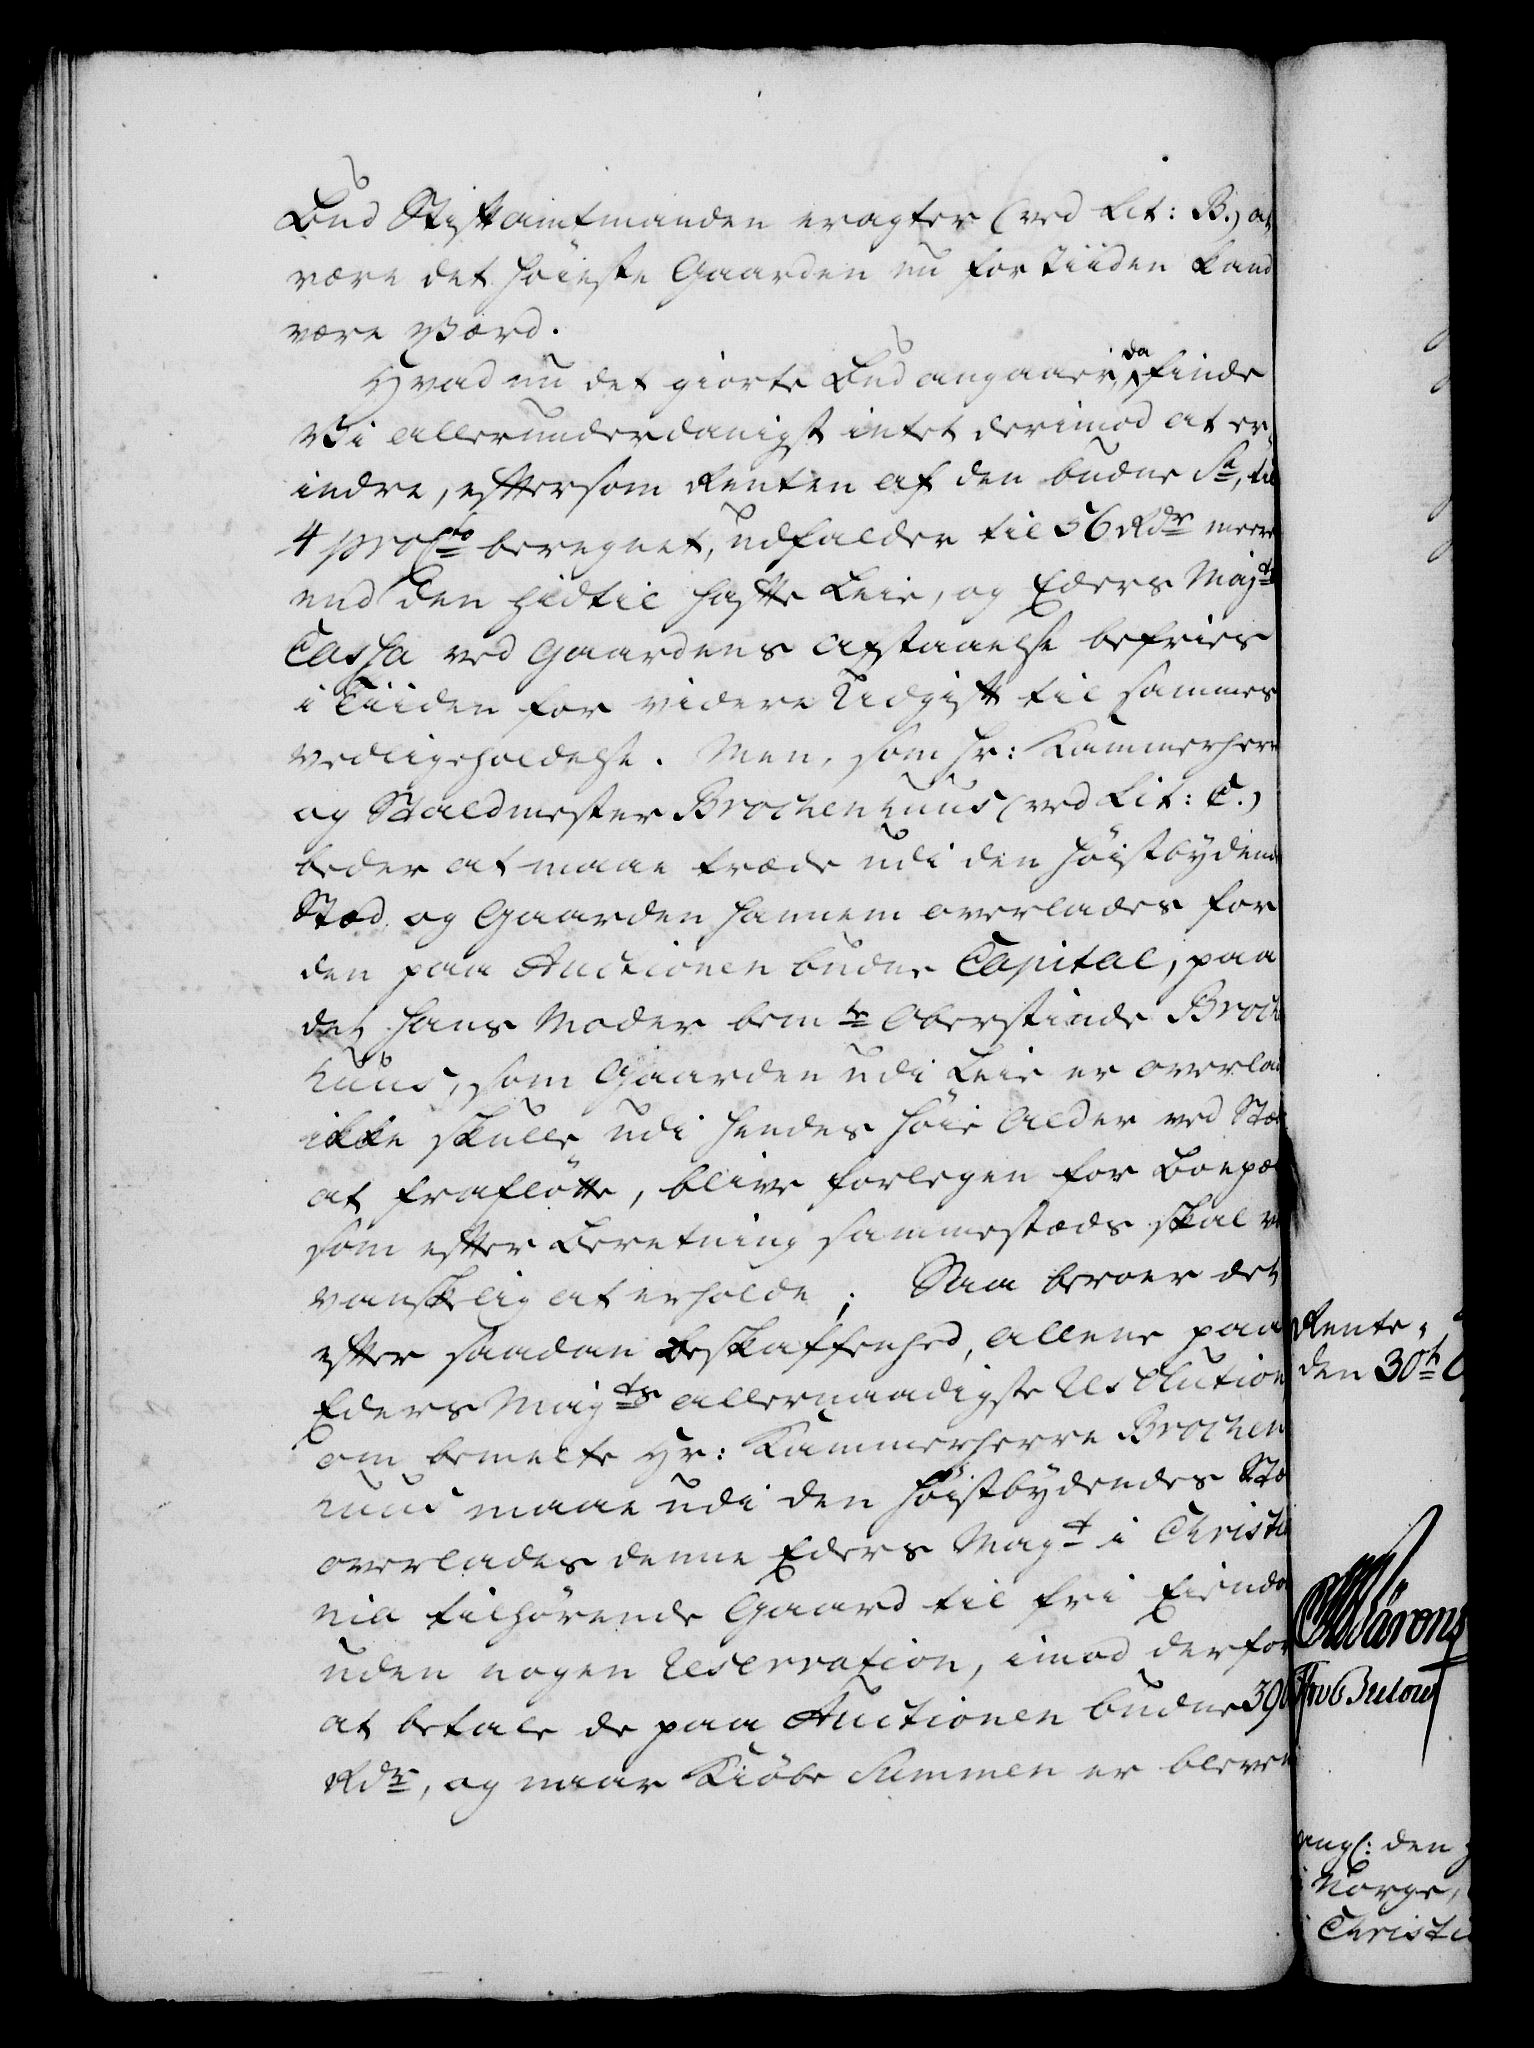 Bud Stiftamtmanden eragter (ved Lit: B.) at
være det höieste Gaarden nu for Tiiden kand
være Værd.
Hvad nu det giorte Bud angaaer, da finde
Vi allerunderdanigst intet derimod at er-
indre, eftersom Renten af den budne Sa, til
4 proCto beregnet, udfalder til 56 Rdr meere
end den hidtil hafte Leie, og Eders Majts
Cassa ved Gaardens Afstaaelse befries
i Tiiden for videre Udgift til sammes
vedligeholdelse. Men, som Hr: Kammerherre
og Staldmester Brochenhuus (ved Lit: C.)
beder at maae træde udi den höistbydende
Stæd og Gaarden hannem overlades for
den paa Auctionen budne Capital, paa
det hans Moder bemte Oberstinde Broch
huus, som Gaarden udi Leie er overla
ikke skulle udi hendes höie Alder ved Stæ
at fraflötte, blive forlegen for Boepæ
som efter Beretning sammestæds skal v
vanskelig at erholde; Saa beroer det
efter saadan beskaffenhed, allene paa
Eders Majts allernaadigste Resolution
om bemelte Hr: Kammerherre Brochen
huus maae udi den höistbydendes Stæ
overlades denne Eders Mayt i Christia
nia tilhörende Gaard til fri Eiendo
uden nogen Reservation, imod derfor
at betale de paa Auctionen budne 390
Rdr, og naar Kiöbe Summen er bleven
Rente-
den 30th
Bulow
den
Norge,
Christi